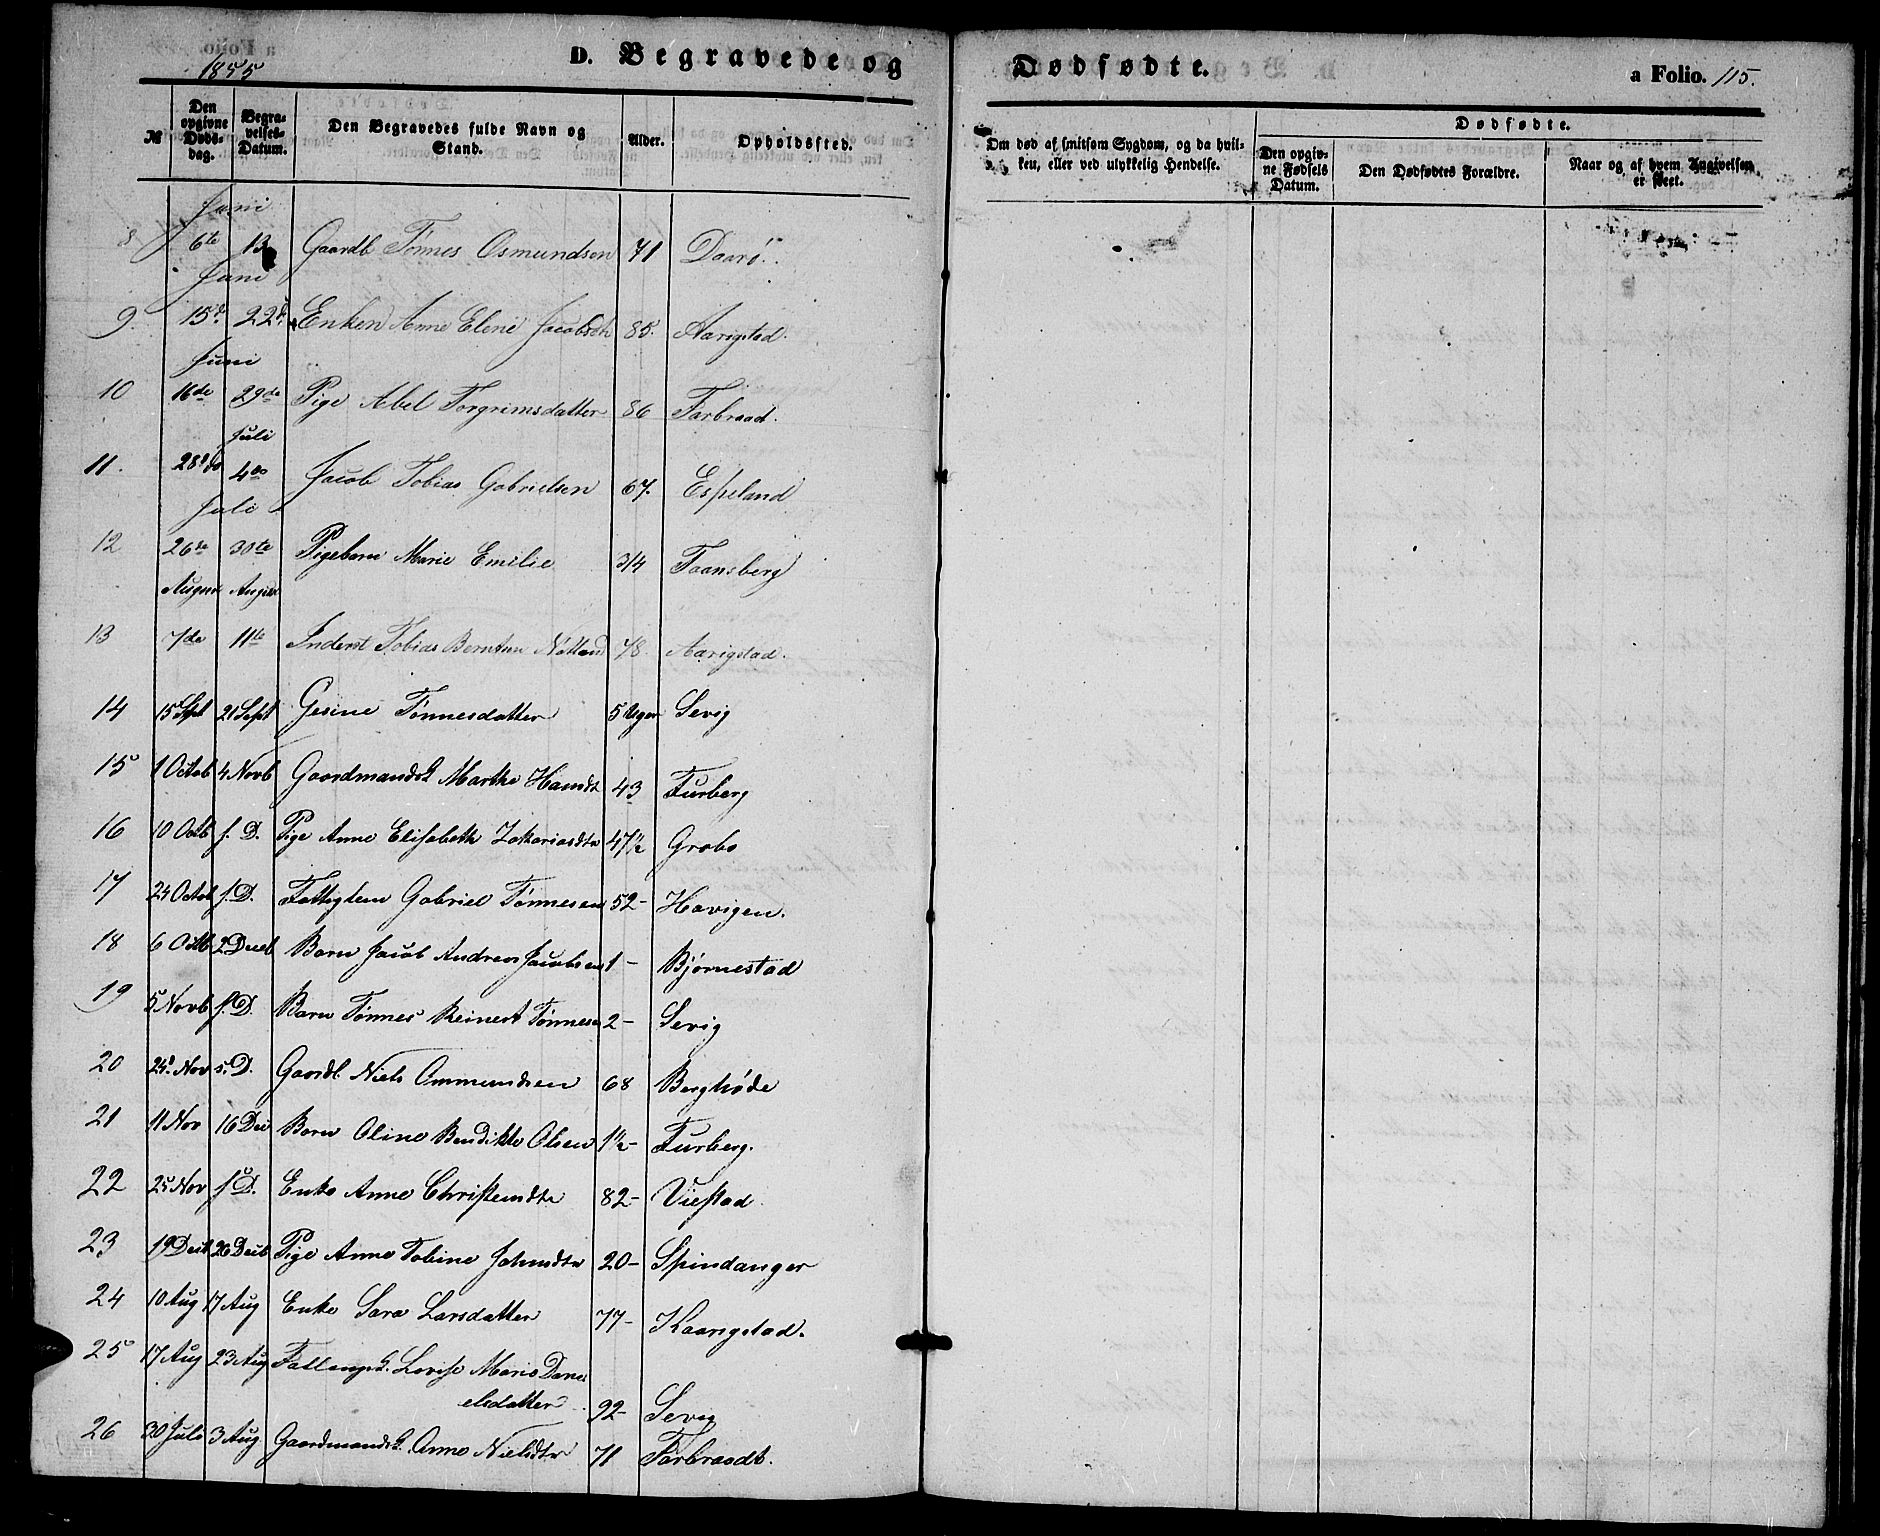 1855
D. Begravede og Dødfødte.
a Folio. 115.
№ | Den opgivne Døds-dag. | Begra-velses-Datum. | Den Begravedes fulde Navn og Stand. | Alder. | Opholdssted. | Om død af smitsom Sygdom, og da hvil-ken, eller ved ulykkelig Hendelse. | Dødfødte. | Den opgiv-ne Fødsels Datum. | Den Dødfødtes Forældre. | Naar og af hvem Angivelsen er skeet.
Juni
8 6te 13 Gaardb Tønnes Osmundsen 71 Daarø.
Juni
9. 15d. 22d. Enken Anne Elene Jacobsdtr 85. Aarigstad.
Juni
10 16de 29de Pige Abel Torgrimsdatter 86 Farbraad.
Juli
11. 28de 4de Jacob Tobias Gabrielsen 67. Espeland
Juli
12 26de 30te Pigebarn Marie Emilie 3/4 Taansberg
August August
13 7de 11te Inderst Tobias Berntsen 78. Aarigstad.
14 15 Sept 21 Sept Gesine Tønnesdatter 5 Uger Sevig
15 1 Octob 4 Novb Gaardmandsk Marthe Hansdtr 43 Furberg
16 10 Octb s. D. Pige Anne Elisabeth Zakariasdtr 47 1/2 Grobo
17 24 Octob s. D. Fattiglem Gabriel Tønnesen 52- Havigen.
18 6 Octb 2 Decb Barn Jacob Andreas Jacobsen 1- Bjørnestad
19 5 Novb s. D. Barn Tønnes Reinert Tønnesen 2- Sevig
20 25 Nov s. D. Gaardb. Niels Ommundsen 68 Berghøde
21 11 Nov 16 Dec Barn Oline Bendikte Olsen 1 1/2- Furberg.
22 25 Nov s. D. Enke Anne Christensdtr 82- Viestad
23 19 Decb 26 Decb Pige Anne Tobine Johnsdtr 20- Spindanger
24 10 Aug 17 Aug Enke Sara Larsdatter 77- Kaangstad.
25 17 Aug 23 Aug Lovise Marie Dani
elsdatter 92- Sevig
26 30 Juli 3 Aug Gaardmandsk. Anne Nielsdtr 71 Farbraadt.